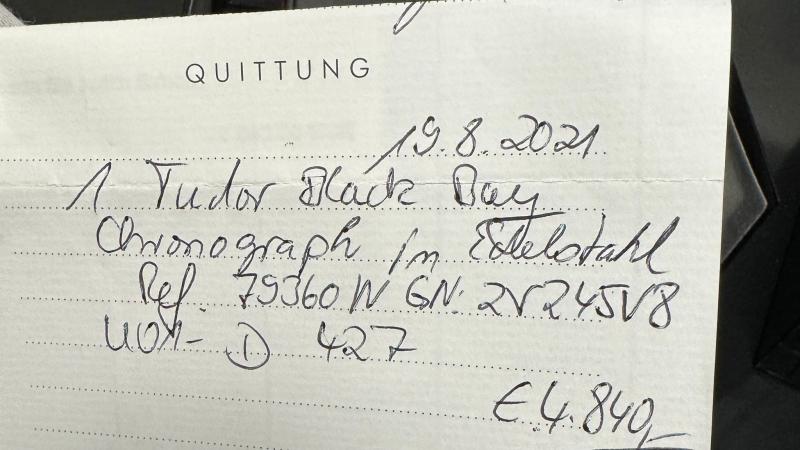 QUITTUNG
19.8.2021
1 Tudor Black Bay
Chronograph in Edelstahl
Ref. 79360N GN: 2V245V8
D 427
€ 4.840,-